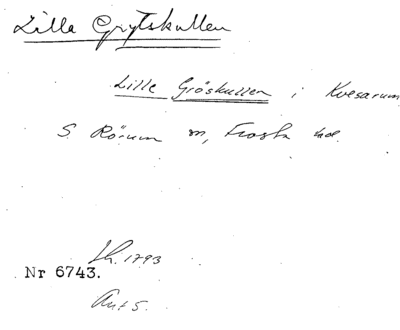 Lilla Grytskullen
Lille Gröskullen i Kvesarum
S. Rörum sn, Frosta hd.
Lh. 1793
Nr 6743.
Ant 5.